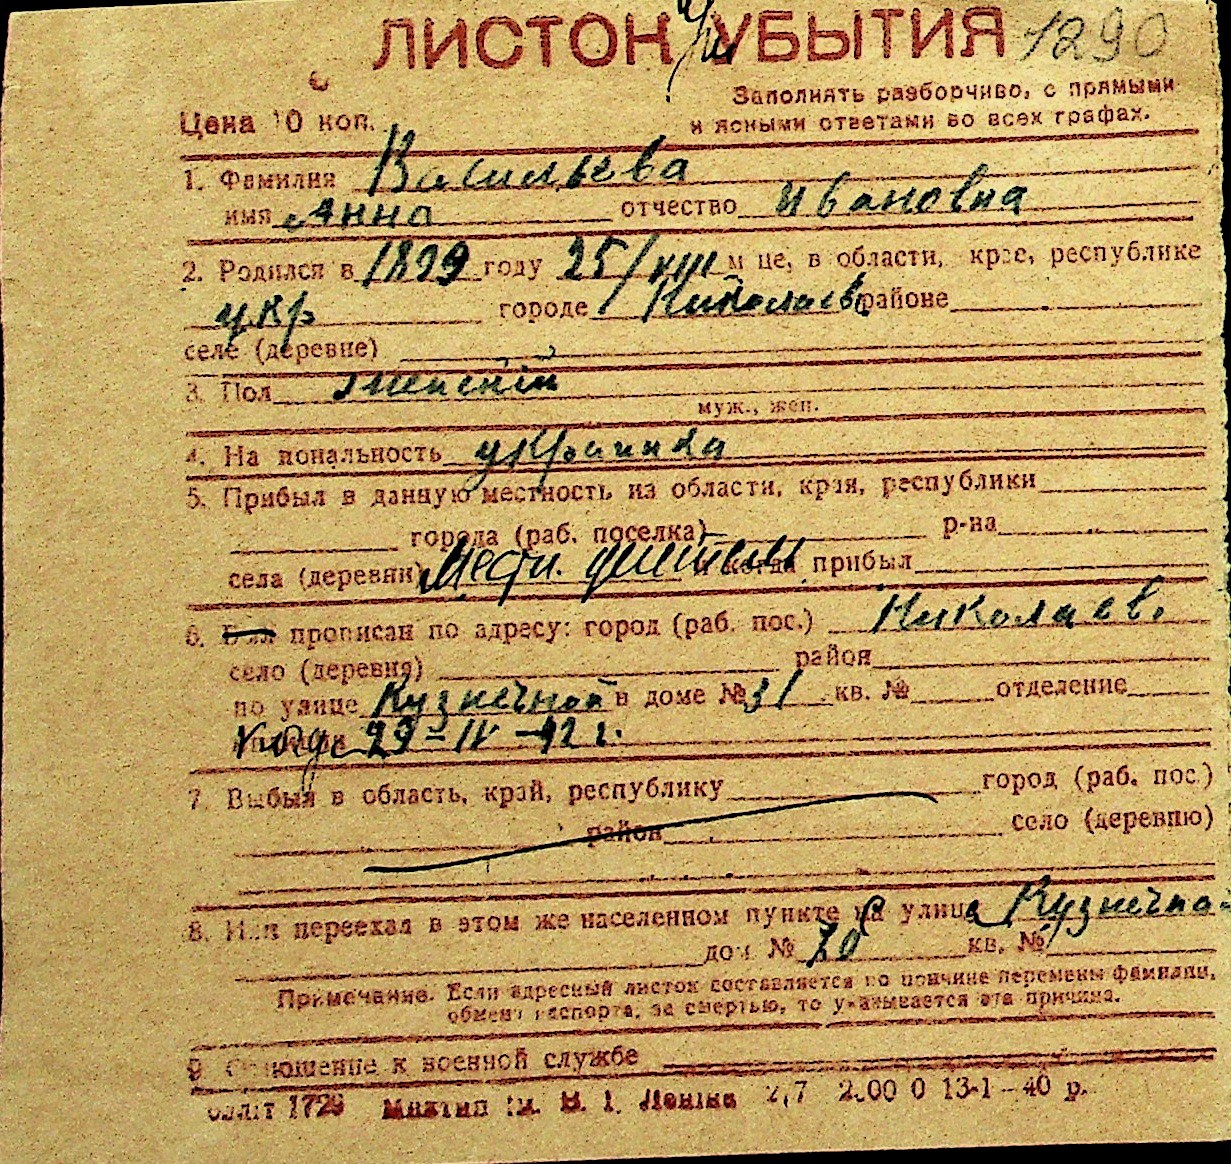 ЛИСТОК При УБЫТИЯ 1290
Заполнять разборчиво, с прямыми
Цена 10 коп. и ясными ответами во всех графах.
1. Фамилия Васильева
имя Анна отчество Ивановна
2. Родился в 1899 году 25/VIII м-це, в области, крае, республике
укр городе Николаев районе
селе (деревне)
3. Пол женский
муж., жен.
4. Национальность украинка
5. Прибыл в данную местность из области, края, республики
города (раб. поселка) р-на
села (деревни) Местн. жительн и когда прибыл
6. Был прописан по адресу: город (раб. пос.) Николаев.
село (деревня) район
по улице Кузнечной в доме № 31 кв. № отделение
29-IV-42 г.
7. Выбыл в область, край, республику город (раб. пос.)
район село (деревню)
8. Или переехал в этом же населенном пункте с улица Кузнечна-
дом № 70 кв. №
Примечание. Если адресный листок составляется по причине перемены фамилии,
обмена паспорта, за смертью, то указывается эта причина.
9 Отношение к военной службе
1729 В. І. Леніна 2,7 2.00 0 13-1-40 р.